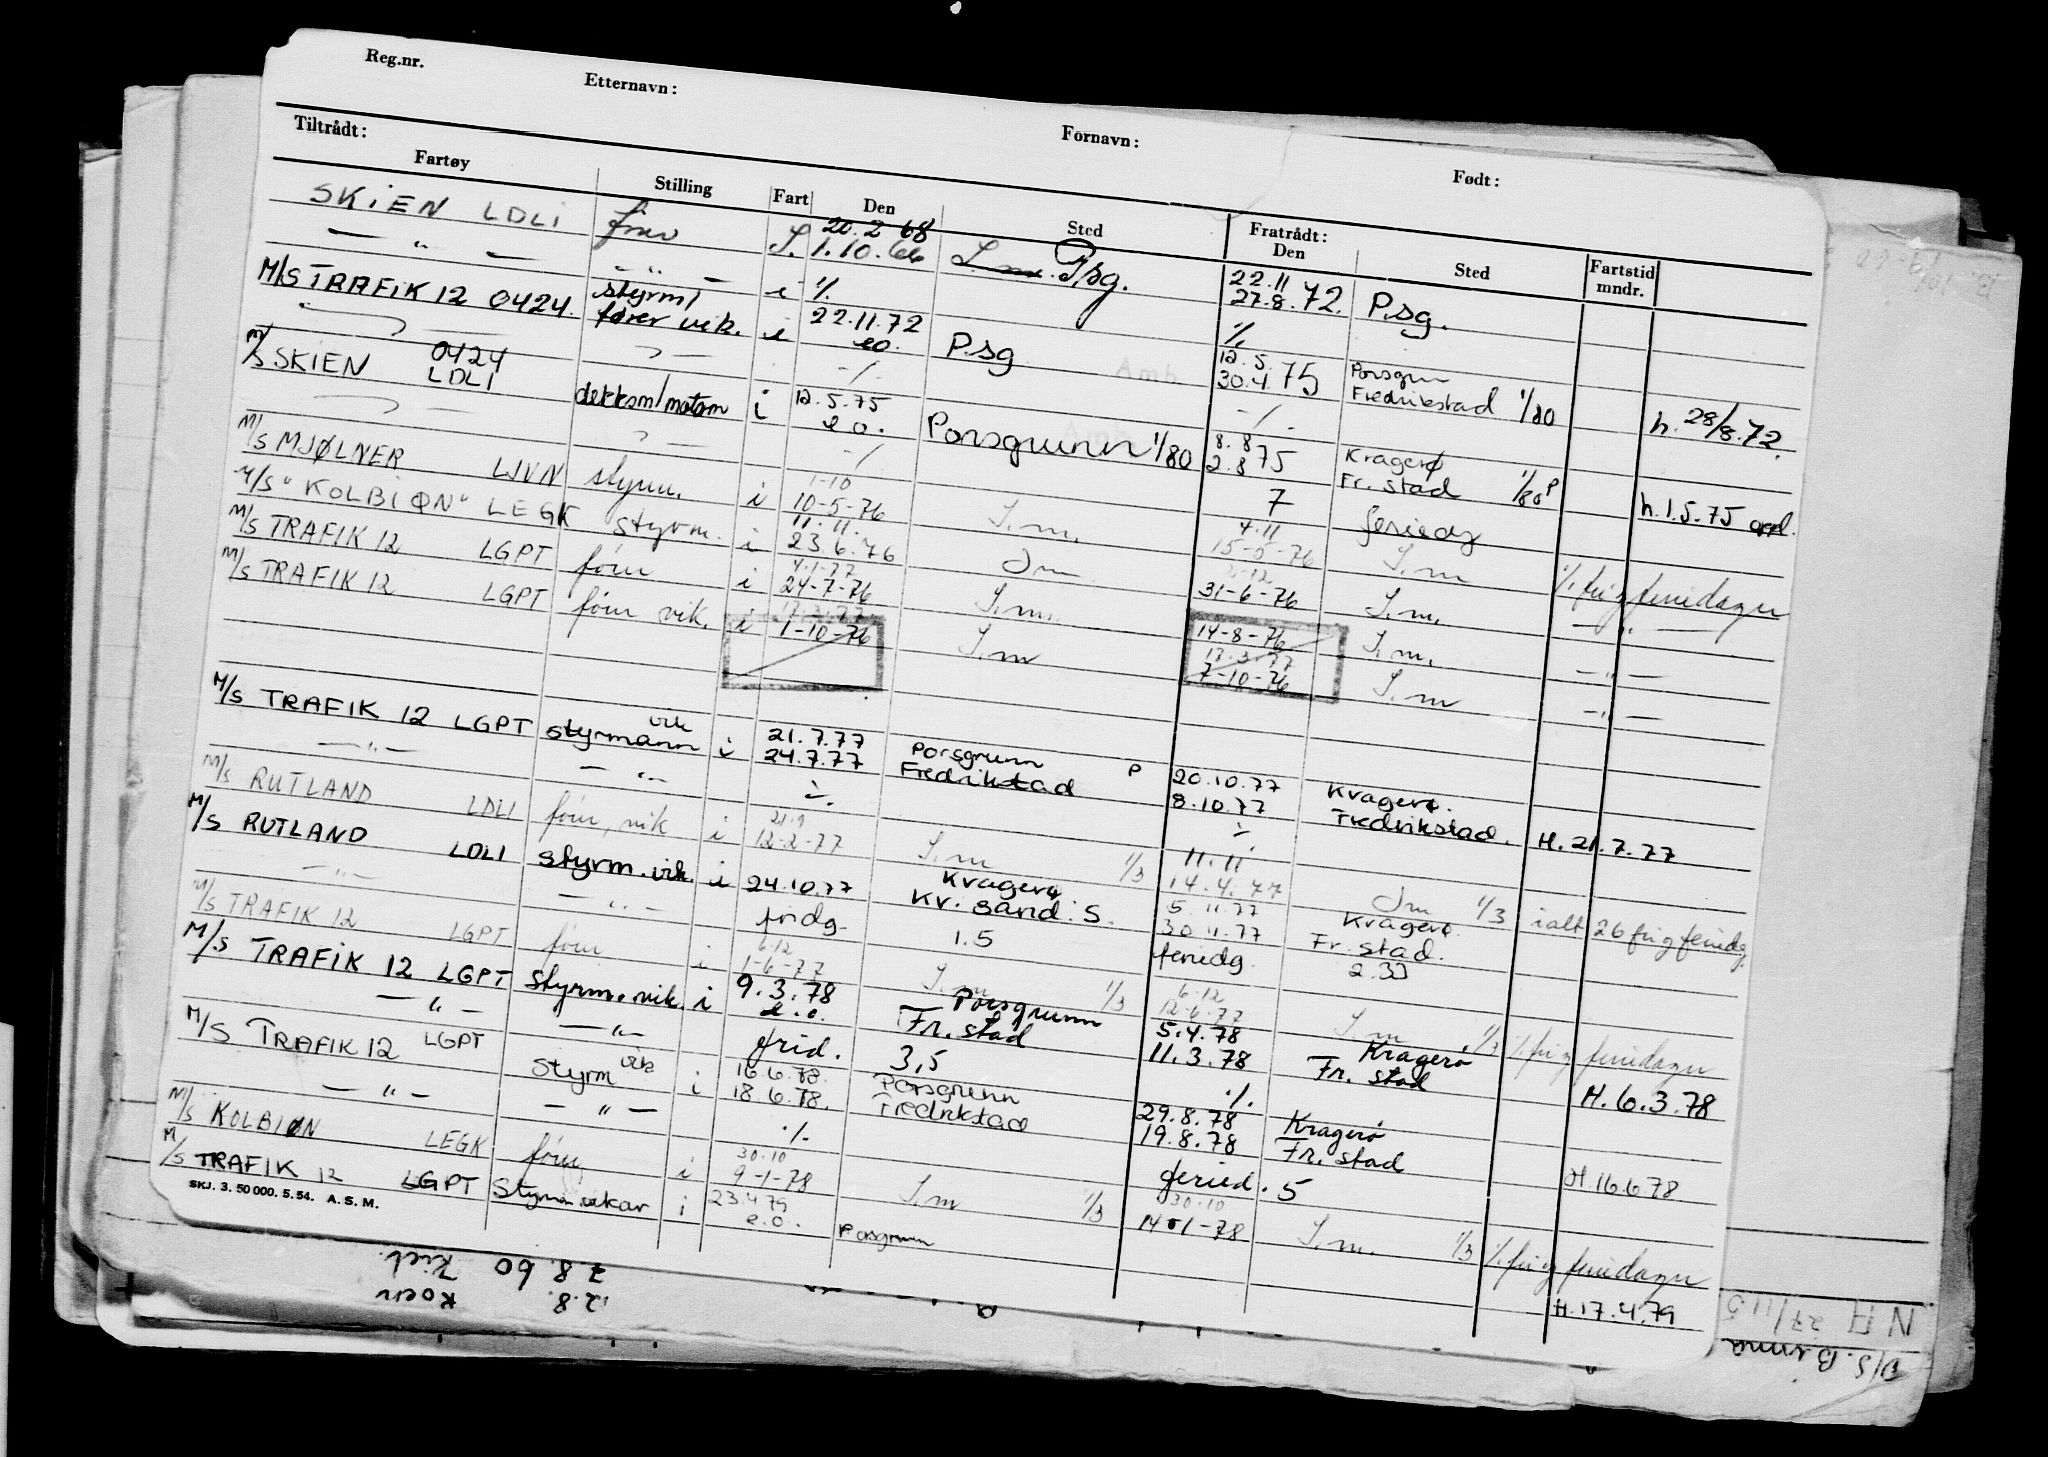 Reg.nr. Etternavn: Fornavn: Født:
Tiltrådt: Fratrådt:
Fartøy Stilling Fart Den Sted Den Sted Fartstid mndr.
SKIEN LDLI fører S. 20.2.68
— " — — " — 1.10.66 S.m. Psg. 22.11 27.8.72. Psg.
M/S TRAFIK 12 0424. styrm/ i %
fører vik. i 22.11.72 Psg %
0424 e.o. 12.5. Porsgrun
M/S SKIEN LDLI -/- 30.4.75 Fredrikstad 1/80 h. 28/8.72.
dekksm/motom i 12.5.75 Porsgrunn 1/80 -/-
e.o. 8.8 Kragerø
-/- 2.8 75 Fr. stad 1/80 P h.1.5.75
M/S MJØLNER LJVN styrm. i 1-10 10-5-76 S.m. 7 feriedg
M/S "KOLBIØN" LEGK styrm. i 11.11. 23.6.76 Sm 4.11 15-5-76 S.m % fri og feriedager
M/S TRAFIK 12 LGPT fører i 4.1-77 24-7-76 S.m. 31-6-76 S.m. — " —
M/S TRAFIK 12 LGPT fører vik. i 17.3.77 1-10-76 S.m 14-8-76 S.m. — " —
17.3.77 7-10-76 S.m — " —
M/S TRAFIK 12 LGPT styrmann vik i 21.7.77 Porsgrunn P 20.10.77 Kragerø.
— " — — " — 24.7.77 Fredrikstad 8.10.77 Fredrikstad. H. 21.7.77
M/S RUTLAND LDLI fører, vik i 21.9 12-2-77 S.m 1/3 11.11 14.4.77 Sm 1/3 ialt 26 fri og feriedg.
M/S RUTLAND LDLI styrm. vik. i 24.10.77 Kragerø 5.11.77 Kragerø.
— " — — " — Kr. sand. S. 30.11.77 Fr. stad.
fridg. 1.5 feriedg. 2.33
M/S TRAFIK 12 LGPT fører i 6.12 1-6-77 S.m 1/3 6-12 12-6-77 S.m 1/3 % fri og feriedager
M/S TRAFIK 12 LGPT styrm. vik. i 9.3.78 Porsgrunn 5.4.78 Kragerø
— " — — " — e.o. Fr. stad 11.3.78 Fr. stad H. 6.3.78
frid. 3,5 %.
M/S TRAFIK 12 LGPT styrm vik i 16.6.78. Porsgrunn 29.8.78 Kragerø
— " — — " — 18.6.78. Fredrikstad 19.8.78 Fr. stad H.16.6.78
%. feried. 5
M/S KOLBIØN LEGK fører i 30.10 9-1-78 S.m 1/3 30.10 14-1-78 S.m. 1/3 % fri og feriedager
M/S TRAFIK 12 LGPT Styrm. vikar i 23.4.79 e.o. Porsgrunn H.17.4.79
SKJ. 3. 50 000. 5. 54. A. S. M.
7.8.60 Kiel.
12.8. Koen
N A 27/11 5
D/S